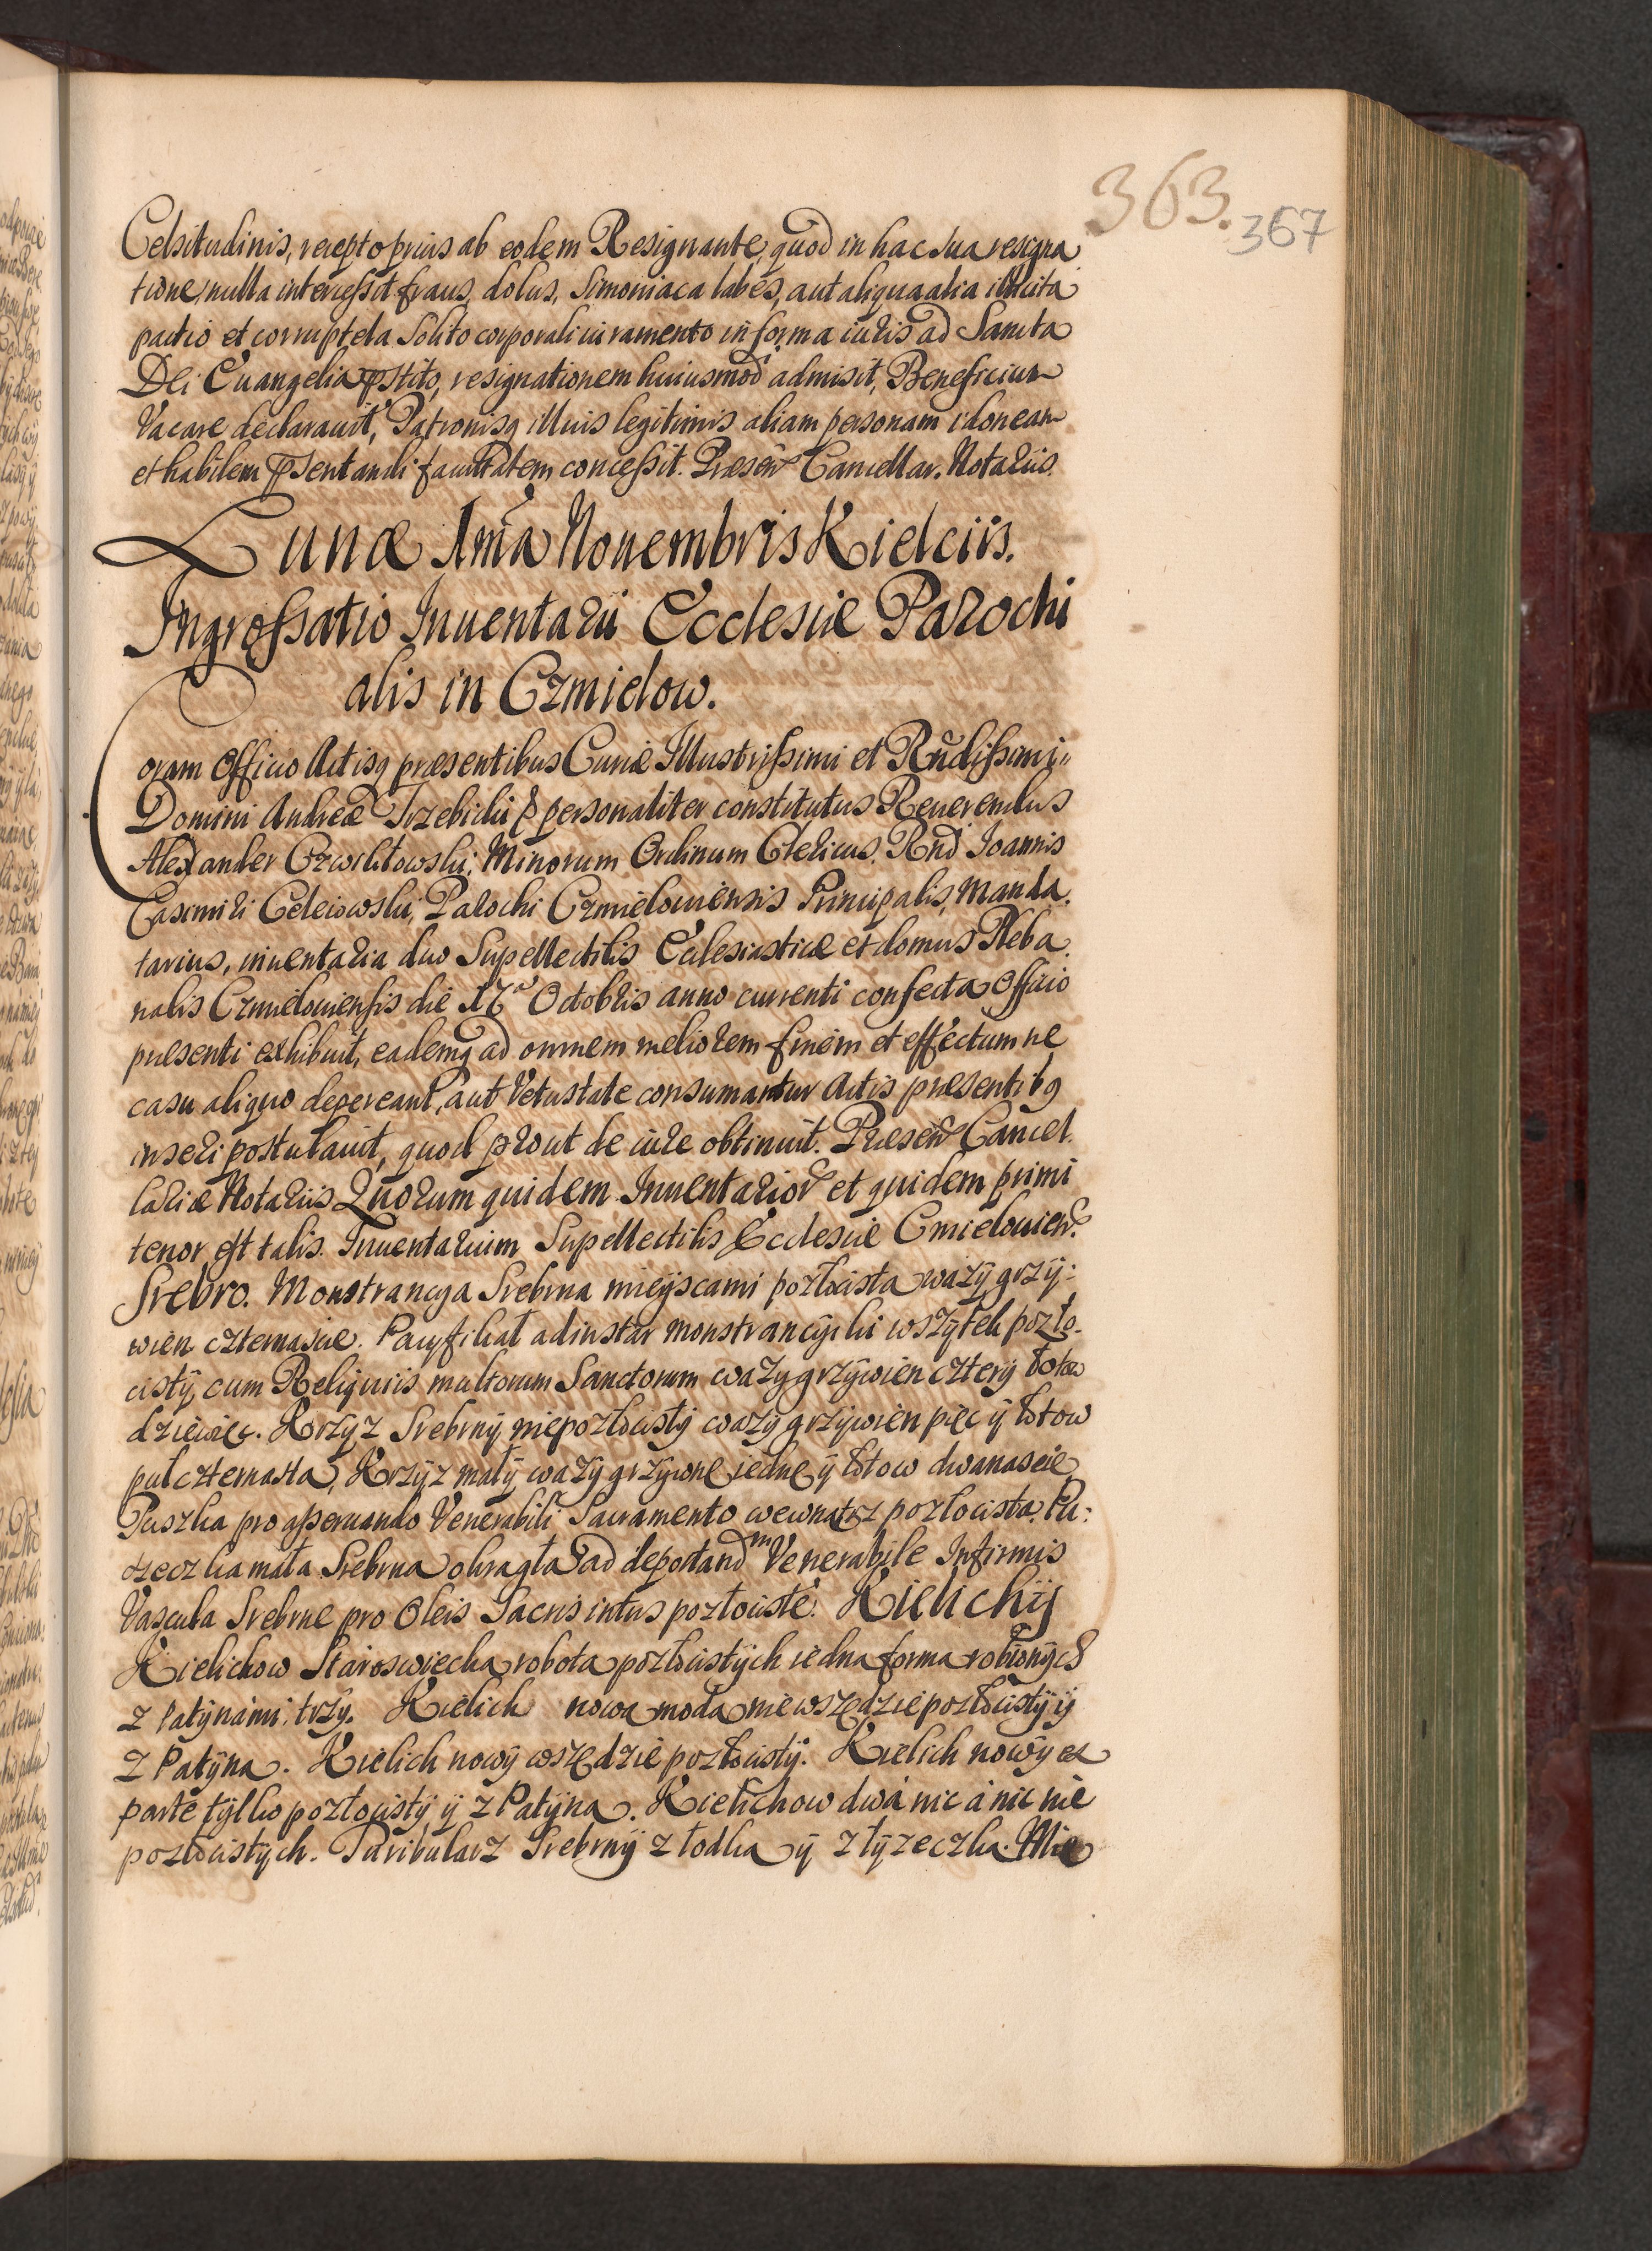 363. 367
Celsitudinis, recepto prius ab eodem Resignante, quod in hac sua resigna
tione, nulla intercessit fraus, dolus, simoniaca labes, aut aliqua alia illicita
pactio et corruptela solito corporali iuramento in forma iuris ad Sancta
Dei Euangelia pstito, resignationem huiusmodi admisit, Beneficium
Vacare declarauit, Patronisq illius legitimis aliam personam idoneam
et habilem psentandi facultatem concessit. Præsen Cancellar. Notariis.
Lunæ 1ma Nouembris Kielciis.
Ingrossatio Inuentarii Ecclesiæ Parochi
alis in Czmielow.
Coram Officio Actisq præsentibus Curiæ Illustrissimi et Rndissimi
Domini Andreæ Trzebicki p personaliter constitutus Reuerendus
Alexander Czwilitowski, Minorum Ordinum Clericus, Rnd Ioannis
Casimiri Celeiowski, Parochi Czmielouiensis Principalis, Manda.
tarius, inuentaria duo Supellectilis Ecclesiasticæ et domus Pleba
nalis Czmielouiensis die 17a Octobris anno currenti confecta Officio
præsenti exhibuit, eademq ad omnem meliorem finem et effectum ne
casu aliquo depereant, aut Vetustate consumantur Actis præsentibq
inseri postulauit, quod prout de iure obtinuit. Præsen Cancel.
lariæ Notariis Quorum quidem Inuentarior et quidem primi
tenor est talis. Inuentarium Supellectilis Ecclesiæ Cmielouien.
Srebro. Monstrancya Srebrna mieyscami pozłocista waży grzy:
wien czternascie. Pacyfikał ad instar monstrancyiki wszytek pozło.
cisty, cum Reliquiis multorum Sanctorum waży grzywien cztery łotow
dziewięc. Krzyz Srebrny niepozłocisty waży grzywien pięc y łotow
puł czternasta, Krzyz mały, waży grzywne iedne y łotow dwanascie
Puszka pro asseruando Venerabili Sacramento wewnatrz pozłocista. Pu:
szeczka mała Srebrna okragła ad deportandm Venerabile Infirmis
Vascula Srebrne pro Oleis Sacris intus pozłociste. Kielichy
Kielichow Staroswiecka robota pozłocistych iedna forma robionych
z Patynami, trzy. Kielich nowa moda nie wszędzie pozłocisty y
z Patyna. Kielich nowy wszędzie pozłocisty. Kielich nowy ex
parte tylko pozłocisty y z Patyna. Kielichow dwa nic a nic nie
pozłocistych. Turibularz Srebrny z łodka y z łyzeczka. Mie